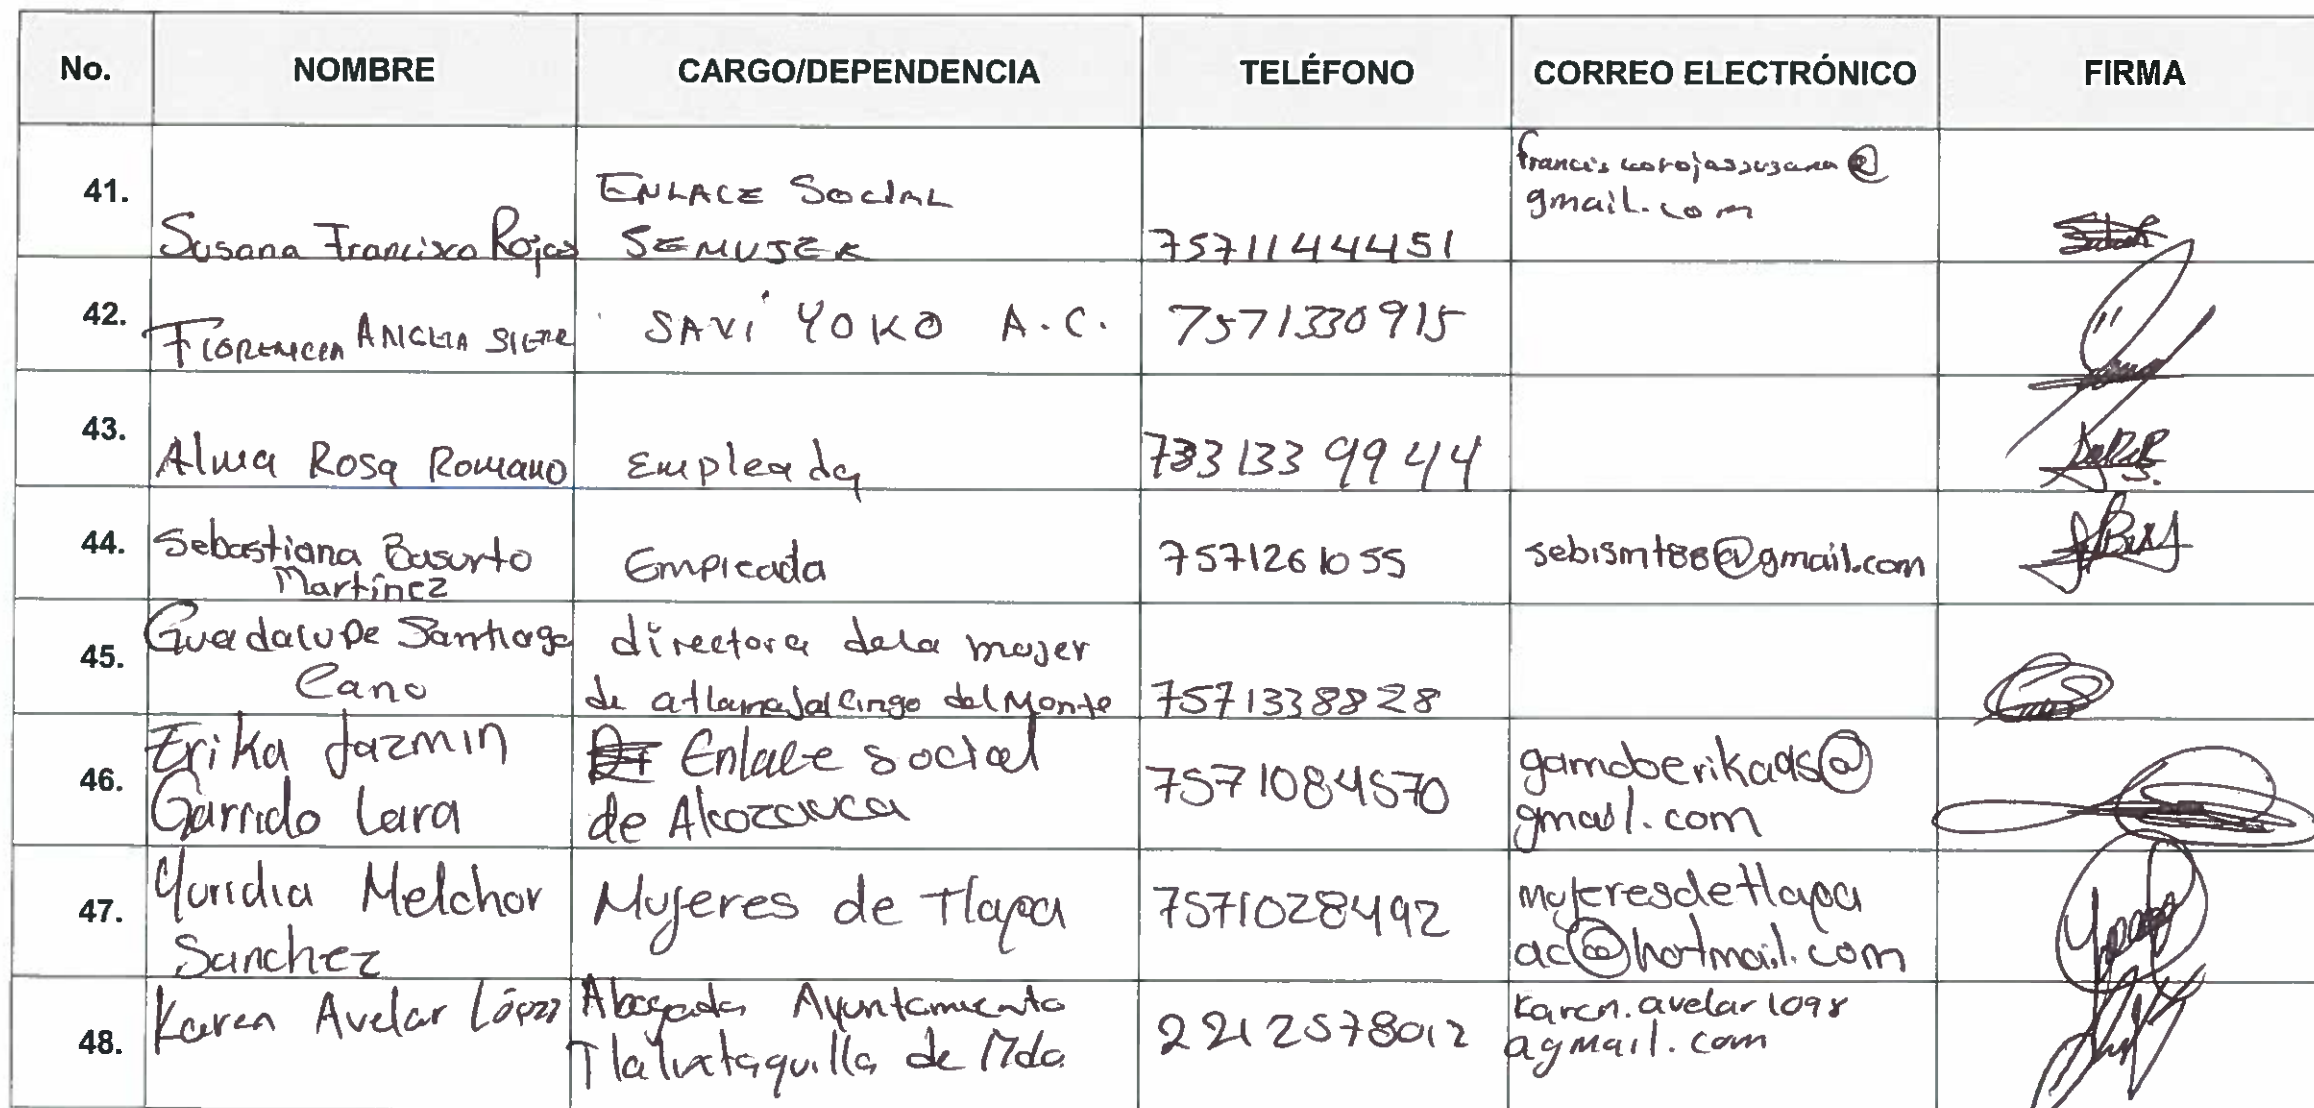 No. NOMBRE CARGO/DEPENDENCIA TELÉFONO CORREO ELECTRÓNICO FIRMA
41. Susana Francisco Rojas ENLACE SOCIAL SEMUJER 75711444451 franciscorojassusana@
gmail.com
42. FLORENCIA SAVI YOKO A.C. 7571330915
43. Alma Rosa Romano Empleada 7331339944
44. Sebastiana Basurto
Martínez Empleada 7571261055 sebismt88@gmail.com
45. Guadalupe Santiago
Cano directora dela mujer
de atlamajalcingo del Monte 7571338828
46. Erika Jazmin
Garrido Lara Enlace social
de Alcozauca 7571084570 garridoerikads@
gmail.com
47. Yuridia Melchor
Sanchez Mujeres de Tlapa 7571028492 mujeresdetlapa
ac@hotmail.com
48. Karen Avelar López Abogada Ayuntamiento
Tlalixtaquilla de Mdo 2212578012 Karen.avelar1098
agmail.com